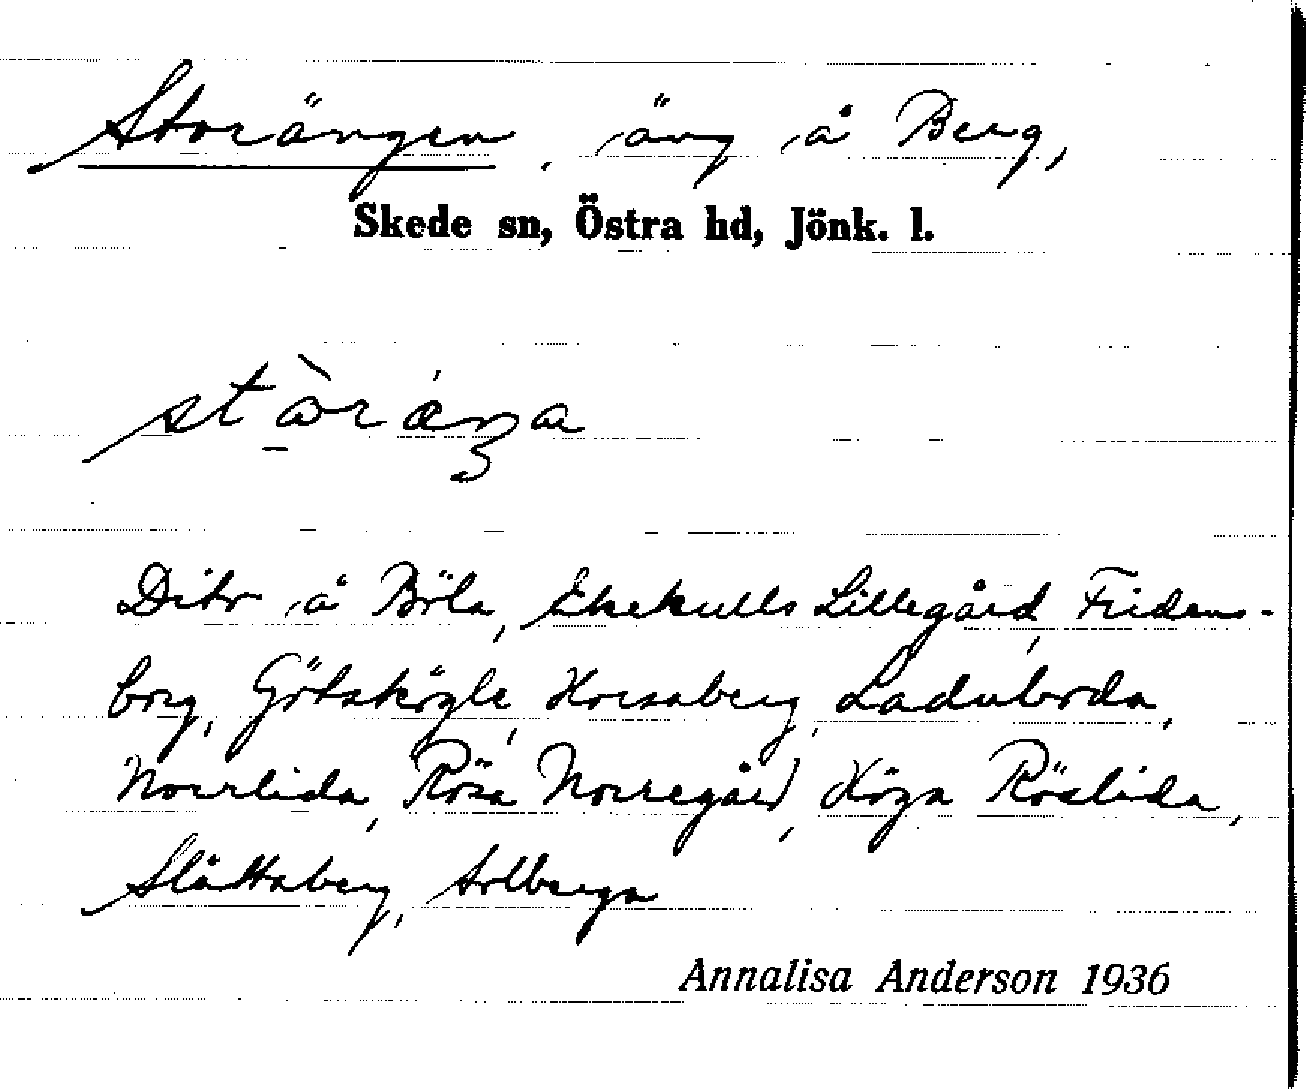 Storängen, äng å Berg,
Skede sn, Östra hd, Jönk. l.
Dito å Böla, Ekekulls Lillegård, Fridens-
borg, Götskögle, Korsaberg, Laduborda,
Norrlida, Rösa Norregård, Höga Röslida,
Slättaberg, Solberga
Annalisa Anderson 1936